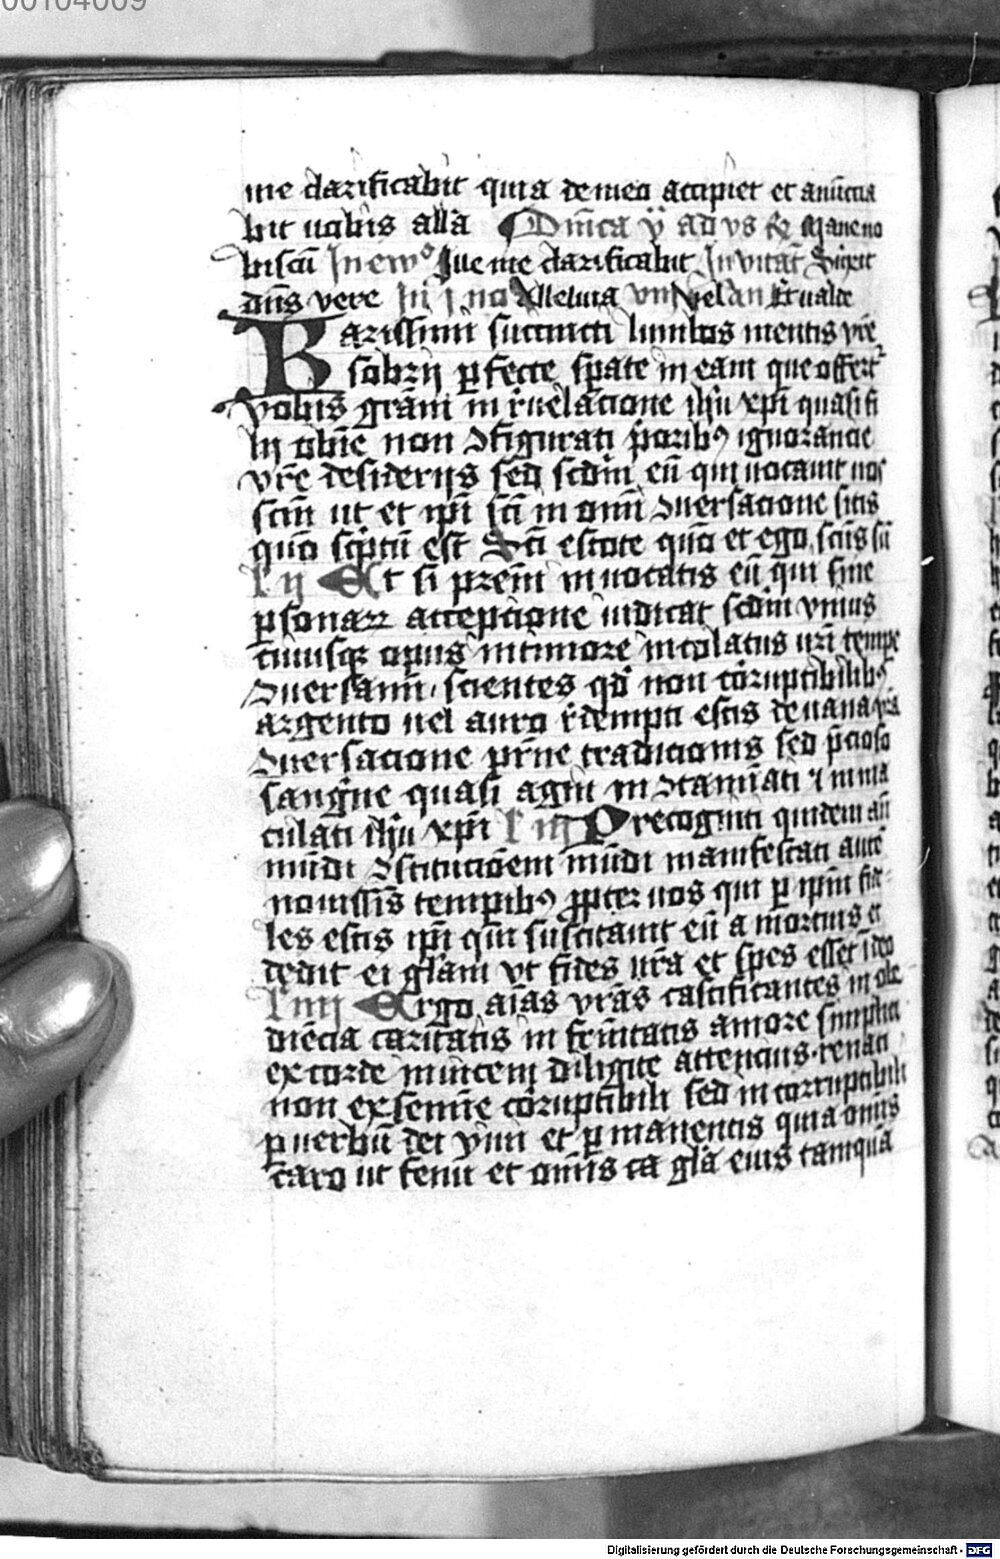 00104009
me clarificabit quia de meo accipiet et anūccia
bit uobis alla Dn̄ica v̄ ad vs R Mane no
biscū In ewo Ille me clarificabit Inuitat̄ Surrexit
dn̄s vere In j no Alleluia
Karissimi succincti lumbos mentis vr̄e
sobrij perfecte sperate in eam que offert̄
vobis grām in reuelacione ih̄u xp̄i quasi fi
lij obēie non Configurati prioribus ignorancie
vr̄e desiderijs sed scd̄m eū qui uocauit uos
sc̄m ut et ip̄i sc̄i in omni Conuersacione sitis
quō sc̄ptū est Sc̄i estote quō et ego sc̄us sū
l ij Et si prēm inuocatis eū qui sine
personarum accepcione iudicat scd̄m vnius
cuiusque opus in timore incolatus ur̄i tempe
Conuersamini scientes qd̄ non corruptibilibus
argento uel auro redempti estis de uana vr̄a
Conuersacione pr̄ne tradicionis sed p̄cioso
sangīne quasi agni in Contamīati et inma
culati ih̄u xp̄i l iij Precogniti quidem an̄
mūdi Constitucōem mūdi manifestati autē
nouissīs temporibus propter uos qui per ipm̄ fide
les estis ip̄i qui suscitauit eū a mortuis et
dedit ei gl̄am vt fides ur̄a et spes esset ī deo
l iiij Ergo aīas vrās castificantes in obe
diēcia caritatis in fr̄nitatis amore simplici
ex corde inuicem diligite attencius renati
non ex semīe corruptibili sed incorruptibili
per uerbū dei viui et permanentis quia omīs
caro ut fenū et omīs ea gl̄a eius tamquā
Digitalisierung gefördert durch die Deutsche Forschungsgemeinschaft - DFG